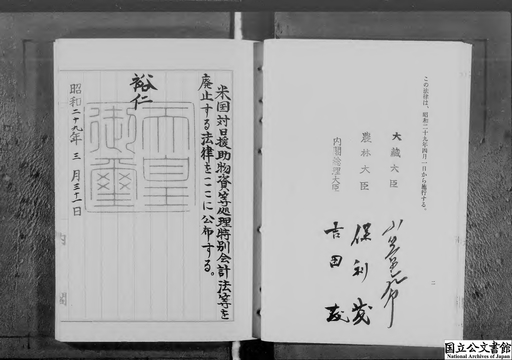 この法律は、昭和二十九年四月一日から施行する。
大蔵大臣
農林大臣
保利茂
内閣総理大臣
吉田茂
二
米国対日援助物資等処理特別会計法等を
廃止する法律をここに公布する。
裕仁
天皇
御璽
昭和二十九年三月三十一日
国立公文書館
National Archives of Japan